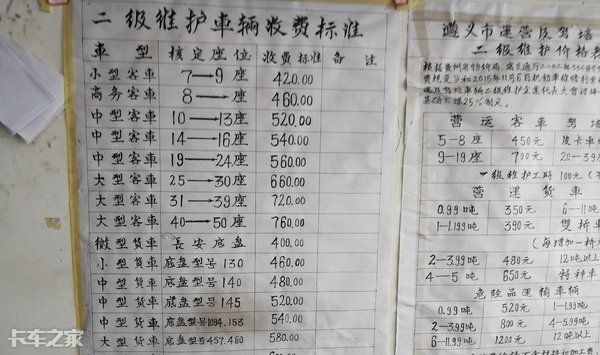 二级维护车辆收费标准
車型 核定座位 收费标准 备注
小型客車 7—9座 420.00
商务客車 8—座 460.00
中型客車 10—13座 520.00
中型客車 14—16座 540.00
中型客車 19—24座 560.00
大型客車 25—30座 660.00
大型客車 31—39座 720.00
大型客車 40—50座 760.00
微型货車 長安底盘 400.00
小型货車 底盘型号130 460.00
中型货車 底盘型号140 480.00
中型货車 底盘型号145 520.00
中型货車 底盘型号1094.153 540.00
大型货車 底盘型号457.460 580.00
遵义市運营及驾培
二级维护价格表
营运客車 驾培
5-8座 450元 皮卡車
9-19座 700元 20-39
一级维护工时 100元
营運货車
0.99吨 350元 6-11吨
1-1.199吨 390元 双桥車
(每增加一桥
2-3.99吨 480元 12吨以上
4-5吨 650元 特种車
危险品運输車辆
0.99吨 520元 1-1.99吨
2-3.99吨 800元 4-5.99吨
6-11.99吨 1200元 12吨以上
卡车之家